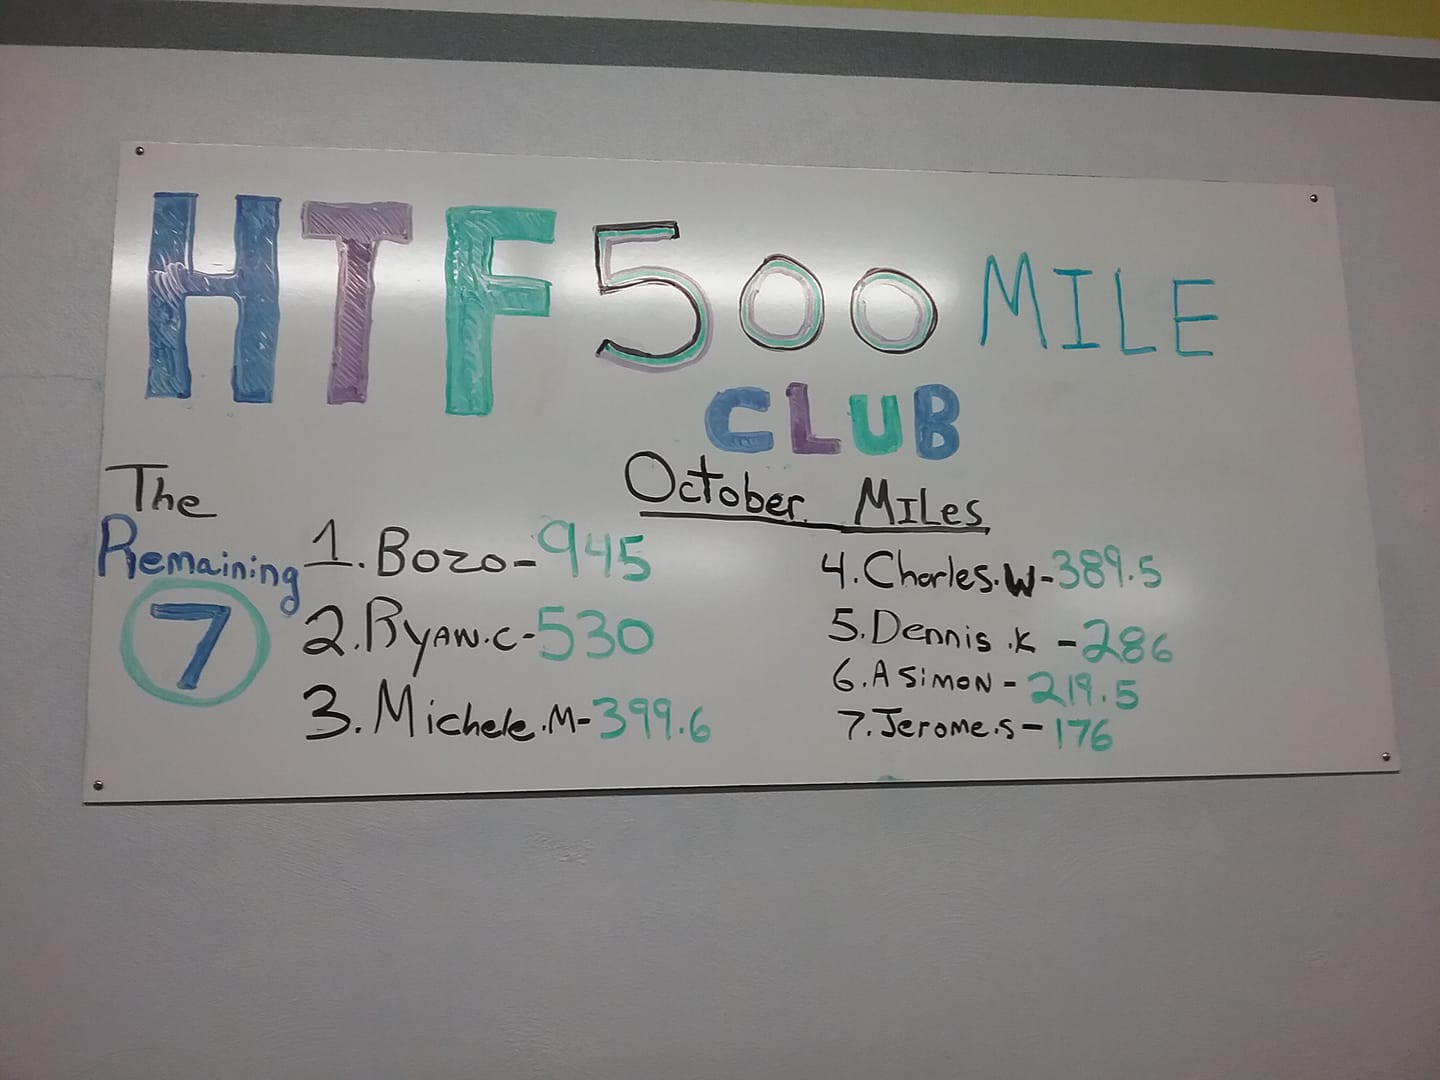 HTF 500 MILE
CLUB
October Miles
The
Remaining
7
1. Bozo - 945
2. Ryan.C - 530
3. Michele.M - 399.6
4. Charles.W - 389.5
5. Dennis.K - 286
6. A Simon - 219.5
7. Jerome.S - 176